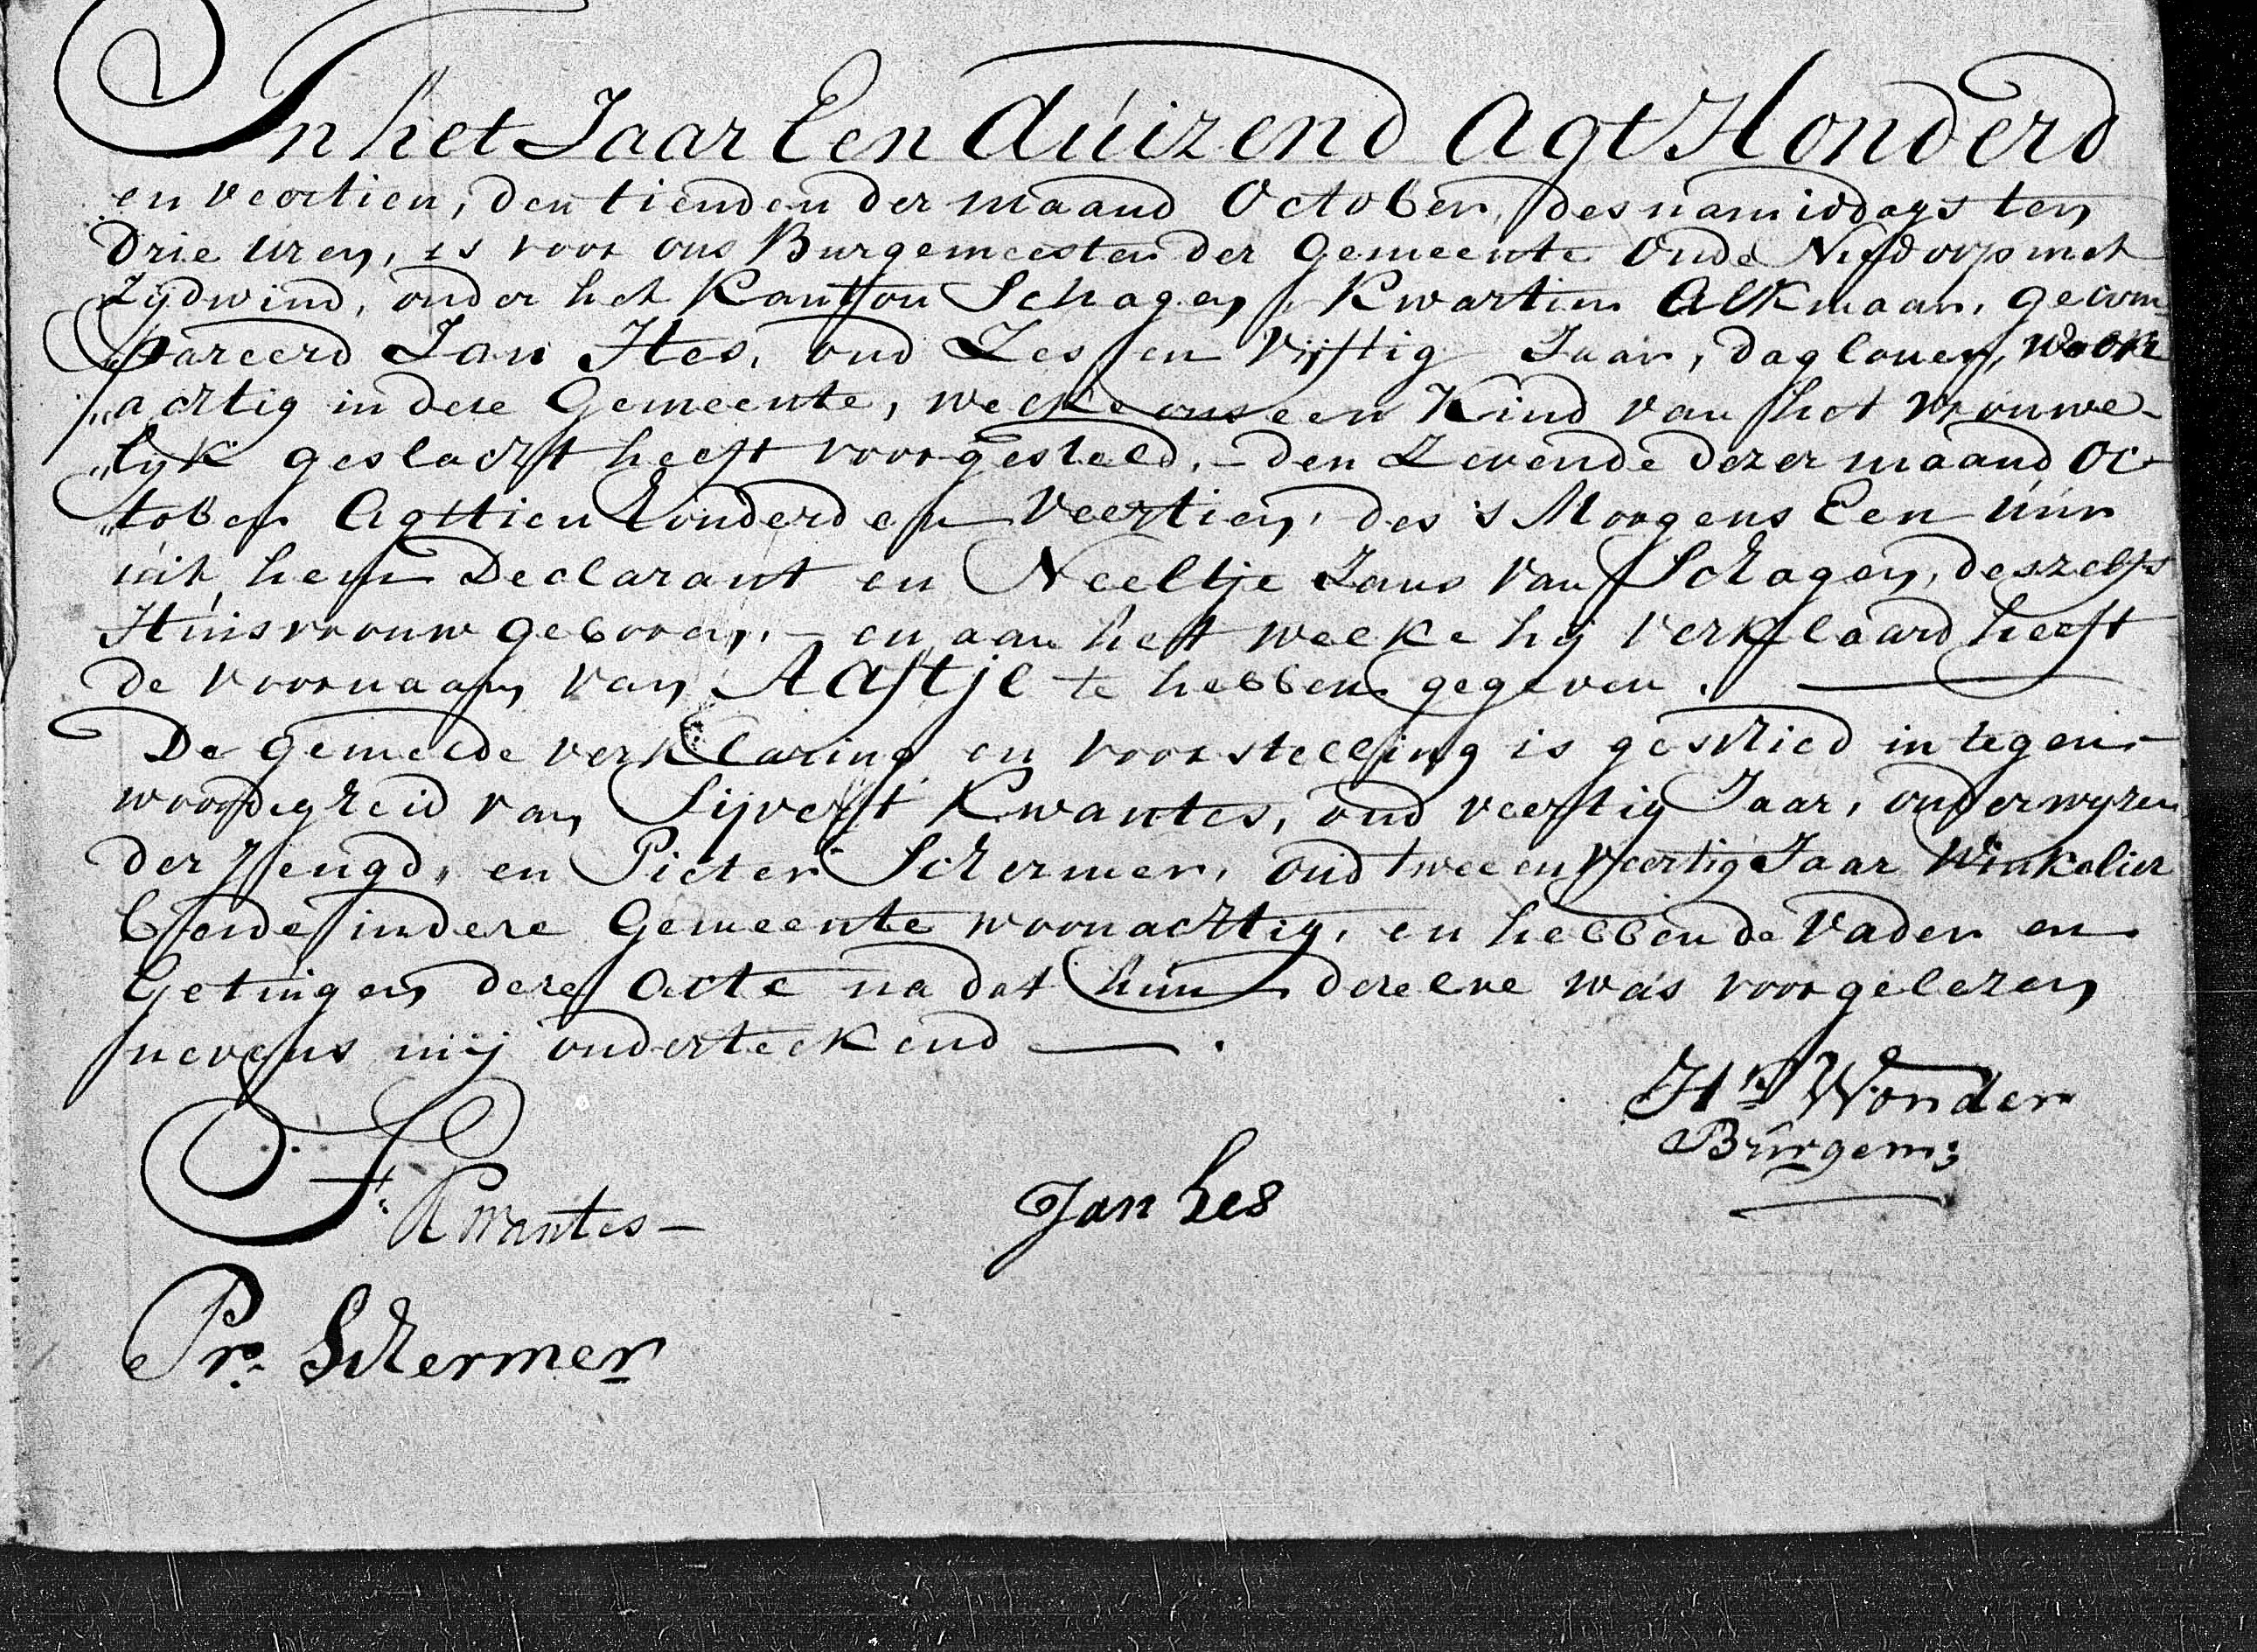 In het Jaar Een duizend Agt Honderd
en veertien, den tienden der maand October, des namiddags ten
Drie uren, is voor ons Burgemeester der Gemeente Oude Nijdorp met
Zijdwind, onder het Kantton Schagen, Kwartier Alkmaar, gecom-
„pareerd Jan Hes, oud Zes en vijftig Jaar, dagloner, woon-
„achtig in deze Gemeente, welke ons een Kind van het vrouwe-
„lijk geslacht heeft voorgesteld, - den Zevende dezer maand Oc-
„tober Agttien honderd en Veertien, des 's Morgens Een úúr
úit hem Declarant en Neeltje Jans van Schagen, deszelfs
Húisvrouw geboren, - en aan het welke hij verklaard heeft
de voornaam van Aaftje te hebben gegeven.
De gemelde verklaring en voorstelling is geschied in tegen-
woordigheid van Sijvert Kwantes, oud veertig Jaar, onderwijzer
der Jeugd, en Pieter Schermer, oud twee en veertig Jaar Winkelier
beide in deze Gemeente woonachtig, en hebben de Vader en
Getúigen deze Acte na dat hún dezelve was voorgelezen
nevens mij onderteekend.
Hk Wonder
Búrgem;
S: Kwantes
Jan hes
Pr. Schermer